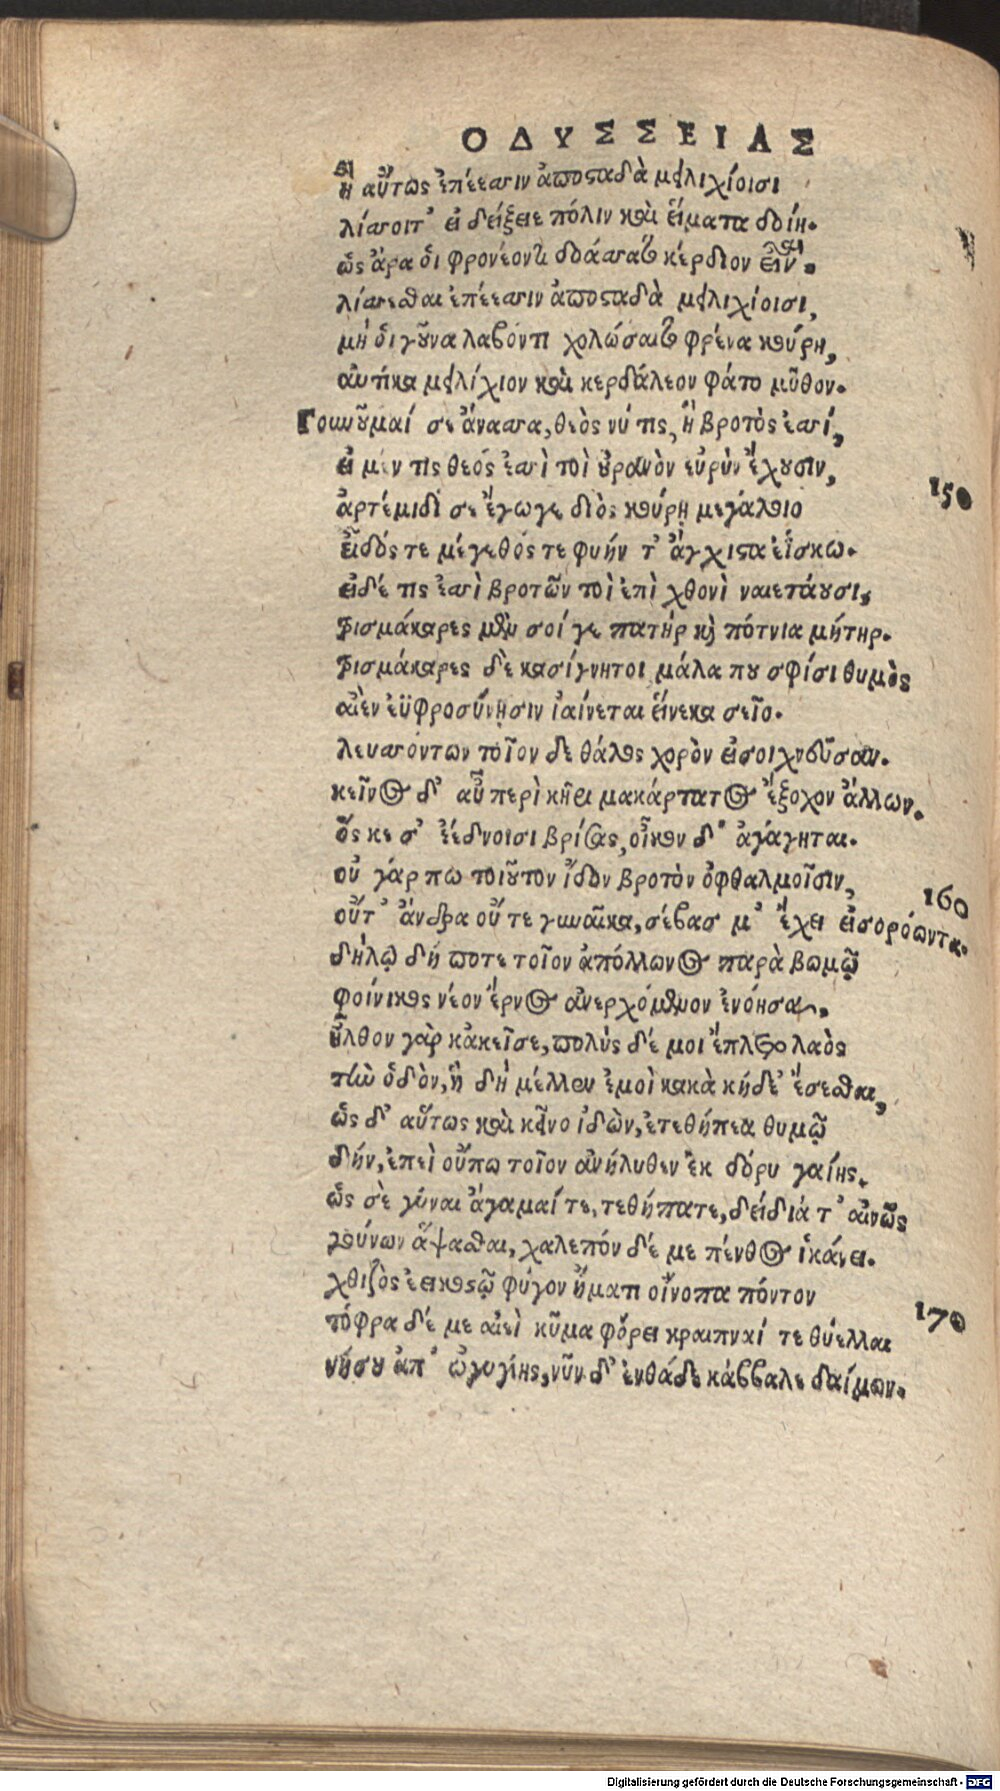 ΟΔΥΣΣΕΙΑΣ
ἢ αὔτως ἐπέεσσιν ἀποσταδὰ μειλιχίοισι
λίσσοιτ' εἰ δείξειε πόλιν καὶ εἵματα δοίη.
ὣς ἄρα οἱ φρονέοντι δοάσσατο κέρδιον εἶναι.
λίσσεσθαι ἐπέεσσιν ἀποσταδὰ μειλιχίοισι,
μή οἱ γοῦνα λαβόντι χολώσαιτο φρένα κούρη,
αὐτίκα μειλίχιον καὶ κερδάλεον φάτο μῦθον.
Γουνοῦμαί σε ἄνασσα, θεὸς νύ τις, ἢ βροτὸς ἐσσί,
150
εἰ μέν τις θεός ἐσσὶ τοὶ οὐρανὸν εὐρὺν ἔχουσιν,
ἀρτέμιδί σε ἔγωγε διὸς κούρῃ μεγάλοιο
εἶδός τε μέγεθός τε φυήν τ' ἄγχιστα ἐΐσκω.
εἰδέ τις ἐσσὶ βροτῶν τοὶ ἐπὶ χθονὶ ναιετάουσι,
τρισμάκαρες μὲν σοί γε πατὴρ καὶ πότνια μήτηρ.
τρισμάκαρες δὲ κασίγνητοι μάλα που σφίσι θυμὸς
αἰὲν ἐϋφροσύνῃσιν ἰαίνεται εἵνεκα σεῖο.
λευσσόντων τοῖον δε θάλος χορὸν εἰσοιχνεῦσαν.
κεῖνος δ' αὖ περὶ κῆρι μακάρτατος ἔξοχον ἄλλων.
ὅς κε σ' ἐέδνοισι βρίσας, οἶκον δ' ἀγάγηται.
160
οὐ γάρ πω τοιοῦτον ἴδον βροτὸν ὀφθαλμοῖσιν,
οὔτ' ἄνδρα οὔ τε γυναῖκα, σέβασ μ' ἔχει εἰσορόωντα.
δήλῳ δή ποτε τοῖον ἀπόλλωνος παρὰ βωμῷ
φοίνικος νέον ἔρνος ἀνερχόμενον ἐνόησα.
ἦλθον γὰρ κἀκεῖσε, πολὺς δέ μοι ἕπλετο λαὸς
τὴν ὁδὸν, ᾗ δὴ μέλλεν ἐμοὶ κακὰ κήδε' ἔσεσθαι,
ὣς δ' αὔτως καὶ κεῖνο ἰδὼν, ἐτεθήπεα θυμῷ
δήν, ἐπεὶ οὔπω τοῖον ἀνήλυθεν ἐκ δόρυ γαίης.
ὣς σὲ γύναι ἄγαμαί τε, τεθήπατε, δείδιά τ' αἰνῶς
γούνων ἅψασθαι, χαλεπόν δέ με πένθος ἱκάνει.
170
χθιζὸς ἐεικοστῷ φύγον ἤματι οἴνοπα πόντον
τόφρα δέ με αἰεὶ κῦμα φόρει κραιπναί τε θύελλαι
νήσου ἀπ' ὠγυγίης, νῦν δ' ἐνθάδε κάββαλε δαίμων.
Digitalisierung gefördert durch die Deutsche Forschungsgemeinschaft - DFG